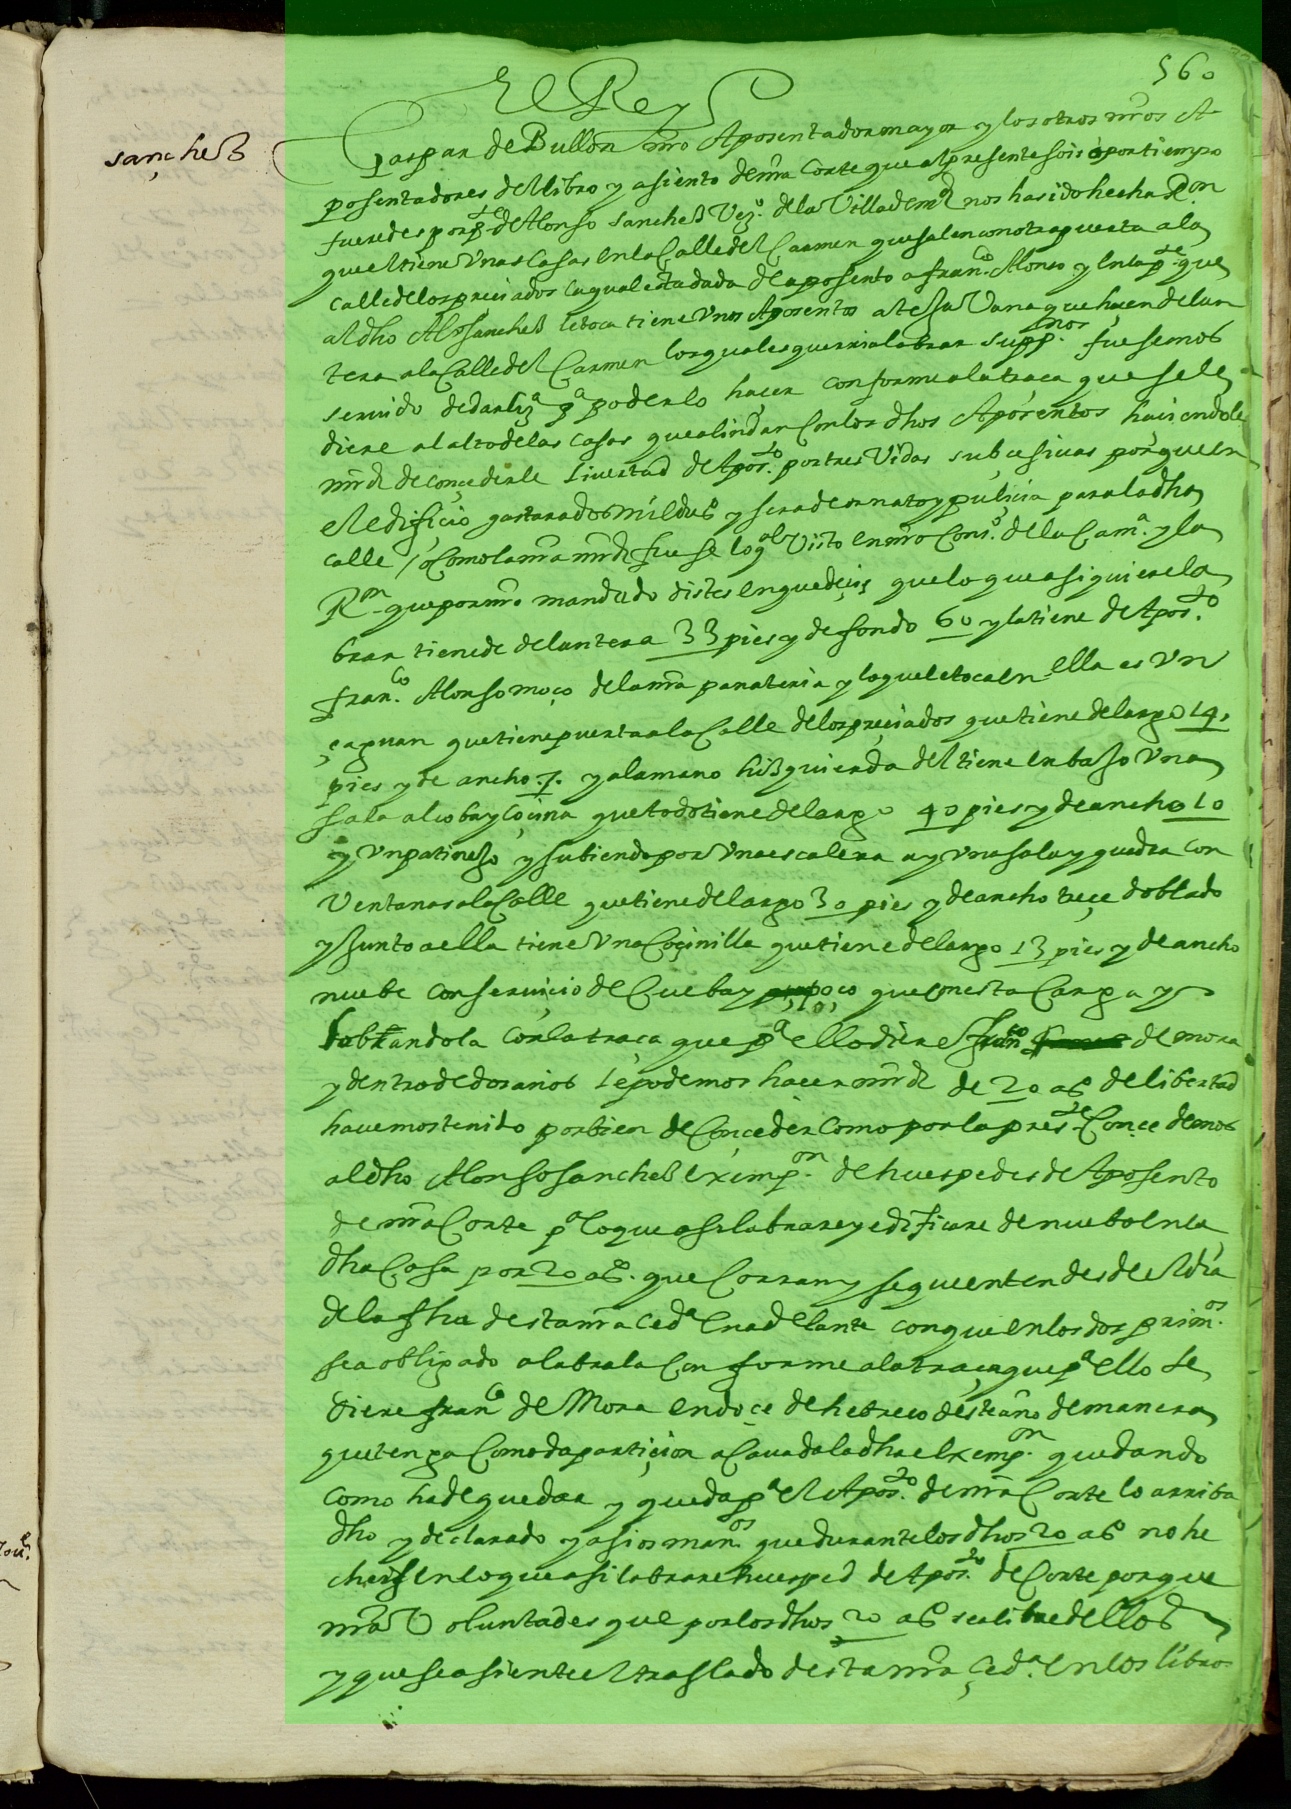 560
El Rey
sanchez
Gaspar de Bullon nro Aposentador mayor y los otros nros A-
posentadores del libro y asiento de nra Corte que al presente sois o por tiempo
fueredes por pte de Alonso sanchez Vezº de la Villa de md nos ha sido hecha Ron
que el tiene Vnas Casas en la Calle del Carmen que salen con otra puerta a la
calle de los preciados la qual esta dada de aposento a franco Alonso y en la pte que
al dho Alº sanchez le toca tiene Vnos Aposentos a teja Vana que hacen delan
tera a la Calle del Carmen los quales querria labrar suppnos fuesemos
seruido de darle lizª pª poderlo hacer conforme a la traça que se le
diere al alto de las casas que alindan con los dhos Aposentos haciendole
mrd de concederle liuertad de Aposto por tres Vidas subcesiuas porque en
el edificio gastara dos mil dus y sera de ornato y puliçia para la dha
calle / o como la nra mrd fuese lo qual Visto en nro Consº de la Camª y la
Ron que por nro mandado distes en que deçis que lo que asi quiere la
brar tiene de delantera 33 pies y de fondo 60 y la tiene de Aposto
franco Alonso moço de la nra panateria y lo que le toca en ella es Vn
çaguan que tiene puerta a la Calle de los preçiados que tiene de largo 14
pies y de ancho .7. y a la mano hizquierda del tiene en bajo Vna
sala alcoba y Coçina que todo tiene de largo 40 pies y de ancho 10
y Vn patinejo y subiendo por Vna escalera ay Vna sala y quadra con
Ventanas a la Calle que tiene de largo 30 pies y de ancho treçe doblado
y Junto a ella tiene Vna Coçinilla que tiene de largo 13 pies y de ancho
nuebe con seruicio de Cueba y poço que con esta Carga y
labrandola con la traça que pª ello diere franco de mora
y dentro de dos años le podemos hacer mrd de 20 as de libertad
hauemos tenido por bien de Conceder como por la preste Concedemos
al dho Alonso sanchez exempon de huespedes de Aposento
de nra Corte pª lo que asi labrare y edificare de nuebo en la
dha Casa por 20 as. que Corran y se quenten desde el dia
de la fha desta nra Cedª en adelante con que en los dos primos
sea obligado a labrala Conforme a la traça que pª ello le
diere franco de Mora en doçe de hebrero deste año de manera
que tenga Comoda partiçion acauada la dha exempon quedando
como ha de quedar y queda pª el Aposto de nra Corte lo arriba
dho y declarado y asi os manos que durante los dhos 20 as no he
cheis en lo que asi labrare huesped de Aposto de Corte porque
nra Voluntad es que por los dhos 20 as sea libre dellos
y que se asiente el traslado desta nra Çedª en los libros